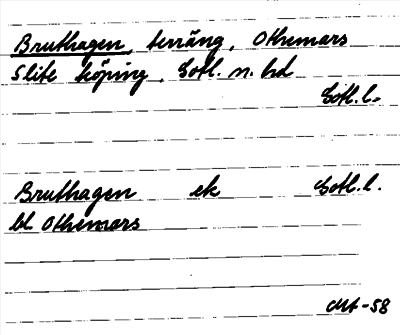 Bruthagen, terräng, Othemars
Slite köping, Gotl. n. hd
Gotl. l.
Bruthagen ek Gotl. l.
bl Othemars
-58